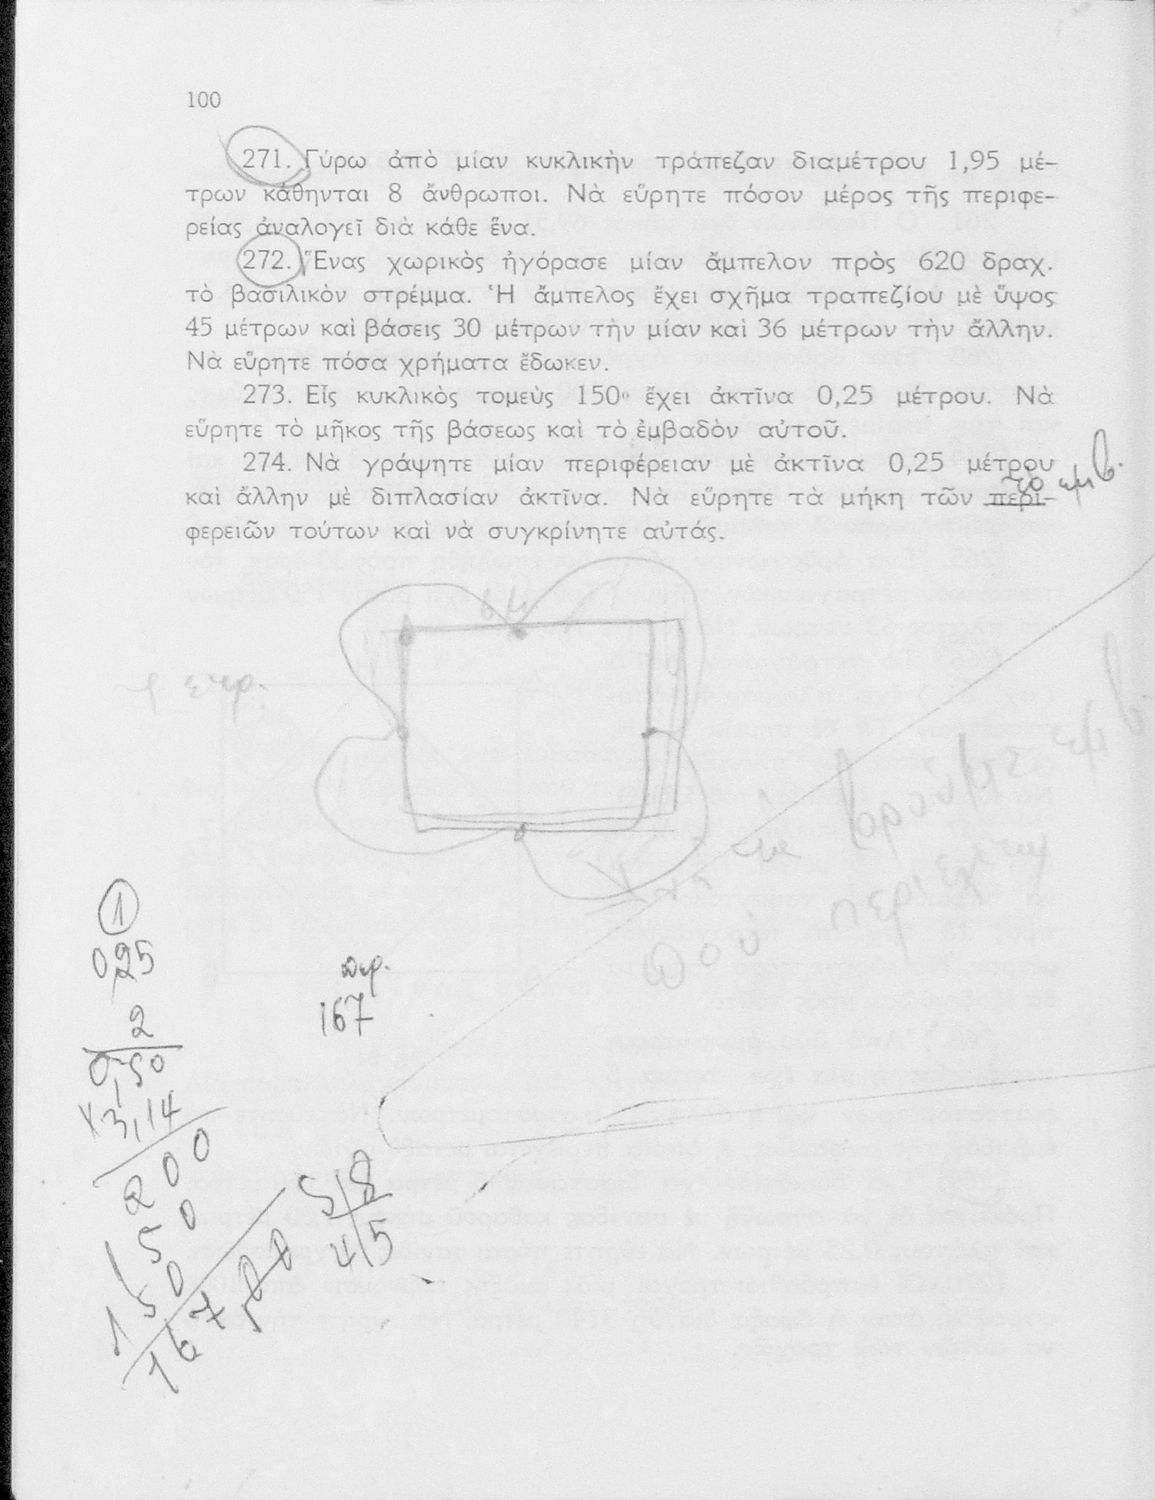 100
271. Γύρω ἀπὸ μίαν κυκλικὴν τράπεζαν διαμέτρου 1,95 μέ-
τρων κάθηνται 8 ἄνθρωποι. Νὰ εὕρητε πόσον μέρος τῆς περιφε-
ρείας ἀναλογεῖ διὰ κάθε ἕνα.
272. Ἕνας χωρικὸς ἠγόρασε μίαν ἄμπελον πρὸς 620 δραχ.
τὸ βασιλικὸν στρέμμα. Ἡ ἄμπελος ἔχει σχῆμα τραπεζίου μὲ ὕψος
45 μέτρων καὶ βάσεις 30 μέτρων τὴν μίαν καὶ 36 μέτρων τὴν ἄλλην.
Νὰ εὕρητε πόσα χρήματα ἔδωκεν.
273. Εἷς κυκλικὸς τομεὺς 150° ἔχει ἀκτῖνα 0,25 μέτρου. Νὰ
εὕρητε τὸ μῆκος τῆς βάσεως καὶ τὸ ἐμβαδὸν αὐτοῦ.
274. Νὰ γράψητε μίαν περιφέρειαν μὲ ἀκτῖνα 0,25 μέτρου
τὸ εμβ.
καὶ ἄλλην μὲ διπλασίαν ἀκτῖνα. Νὰ εὕρητε τὰ μήκη τῶν περι-
φερειῶν τούτων καὶ νὰ συγκρίνητε αὐτάς.
βροῦμε εμβ
ποὺ περιέχεται
1
0,25
2
0,50
περ.
167
x 3,14
200
50
150
5 8
4 5